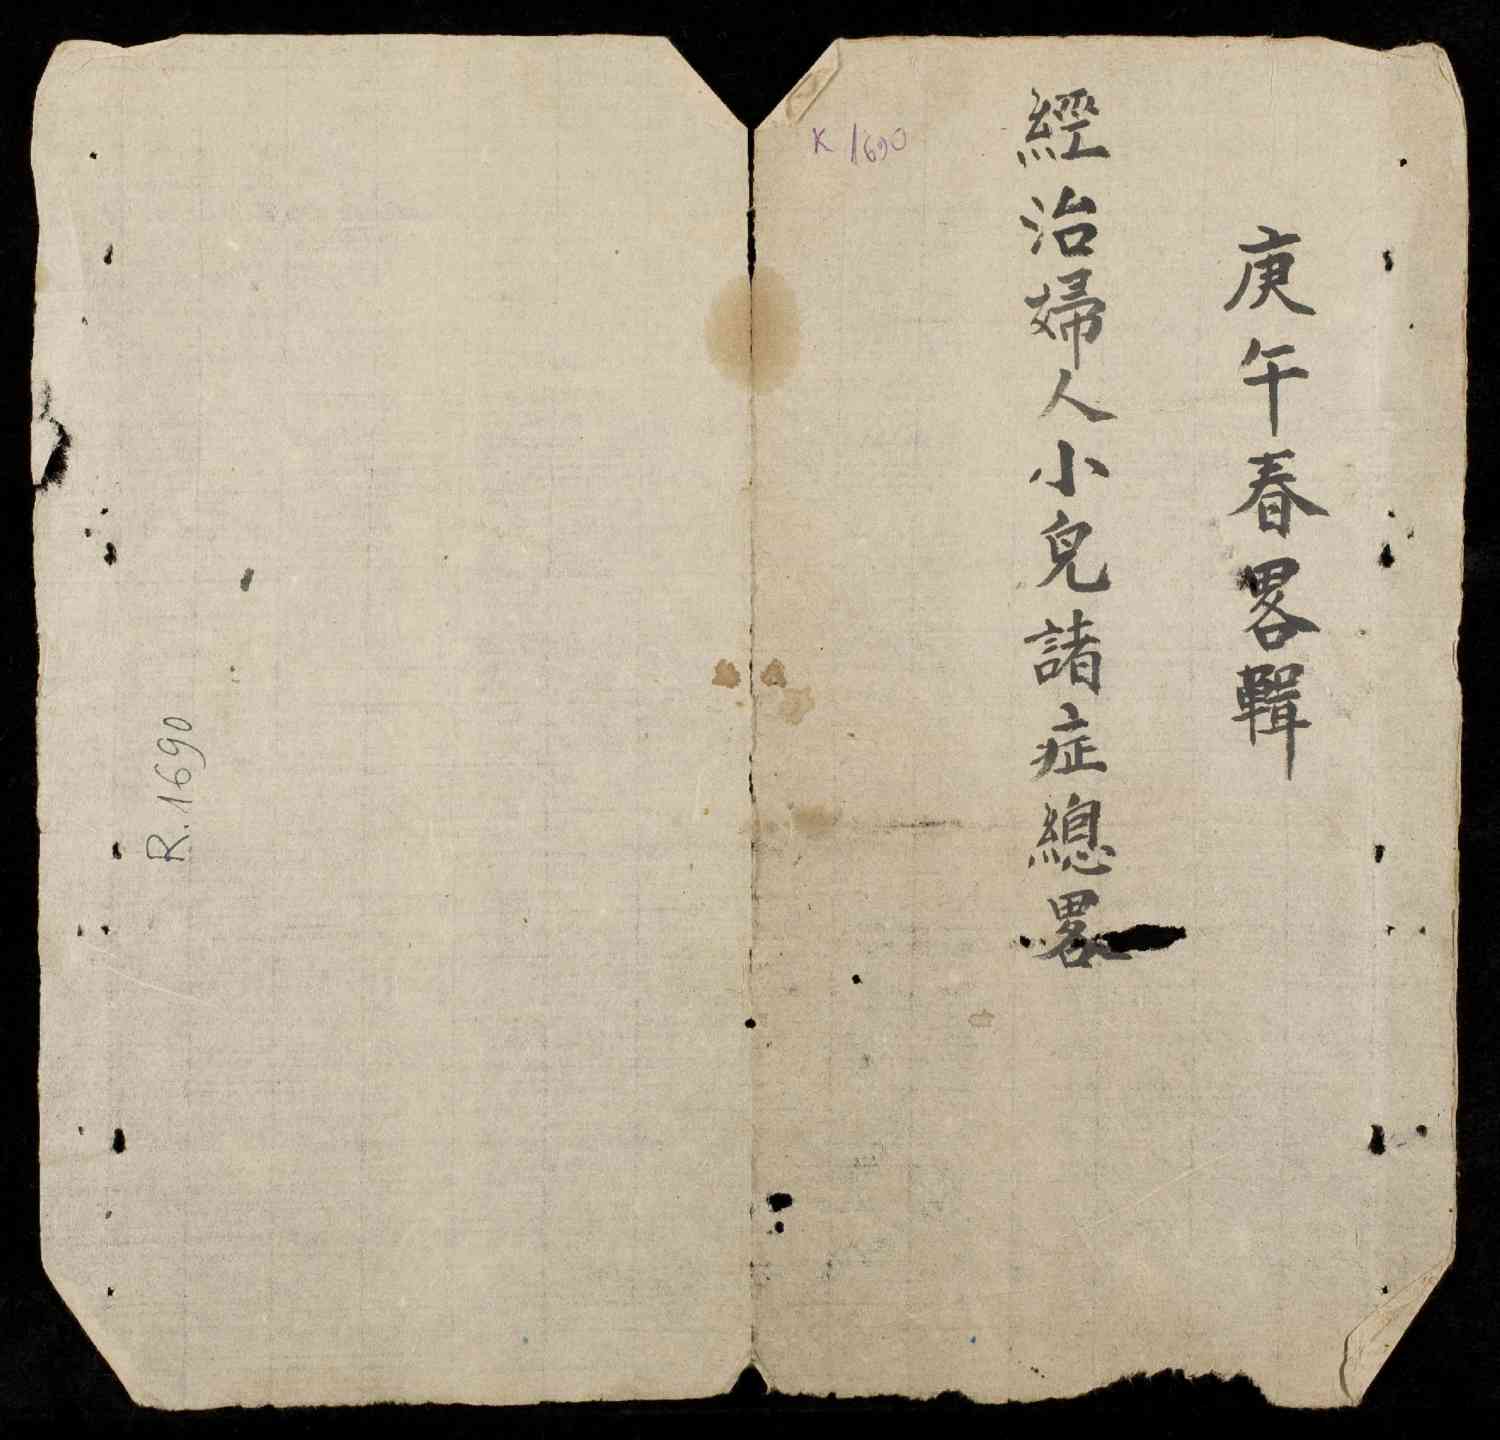 庚午春畧輯
經治婦人小兒諸症總畧
K 1690
R.1690